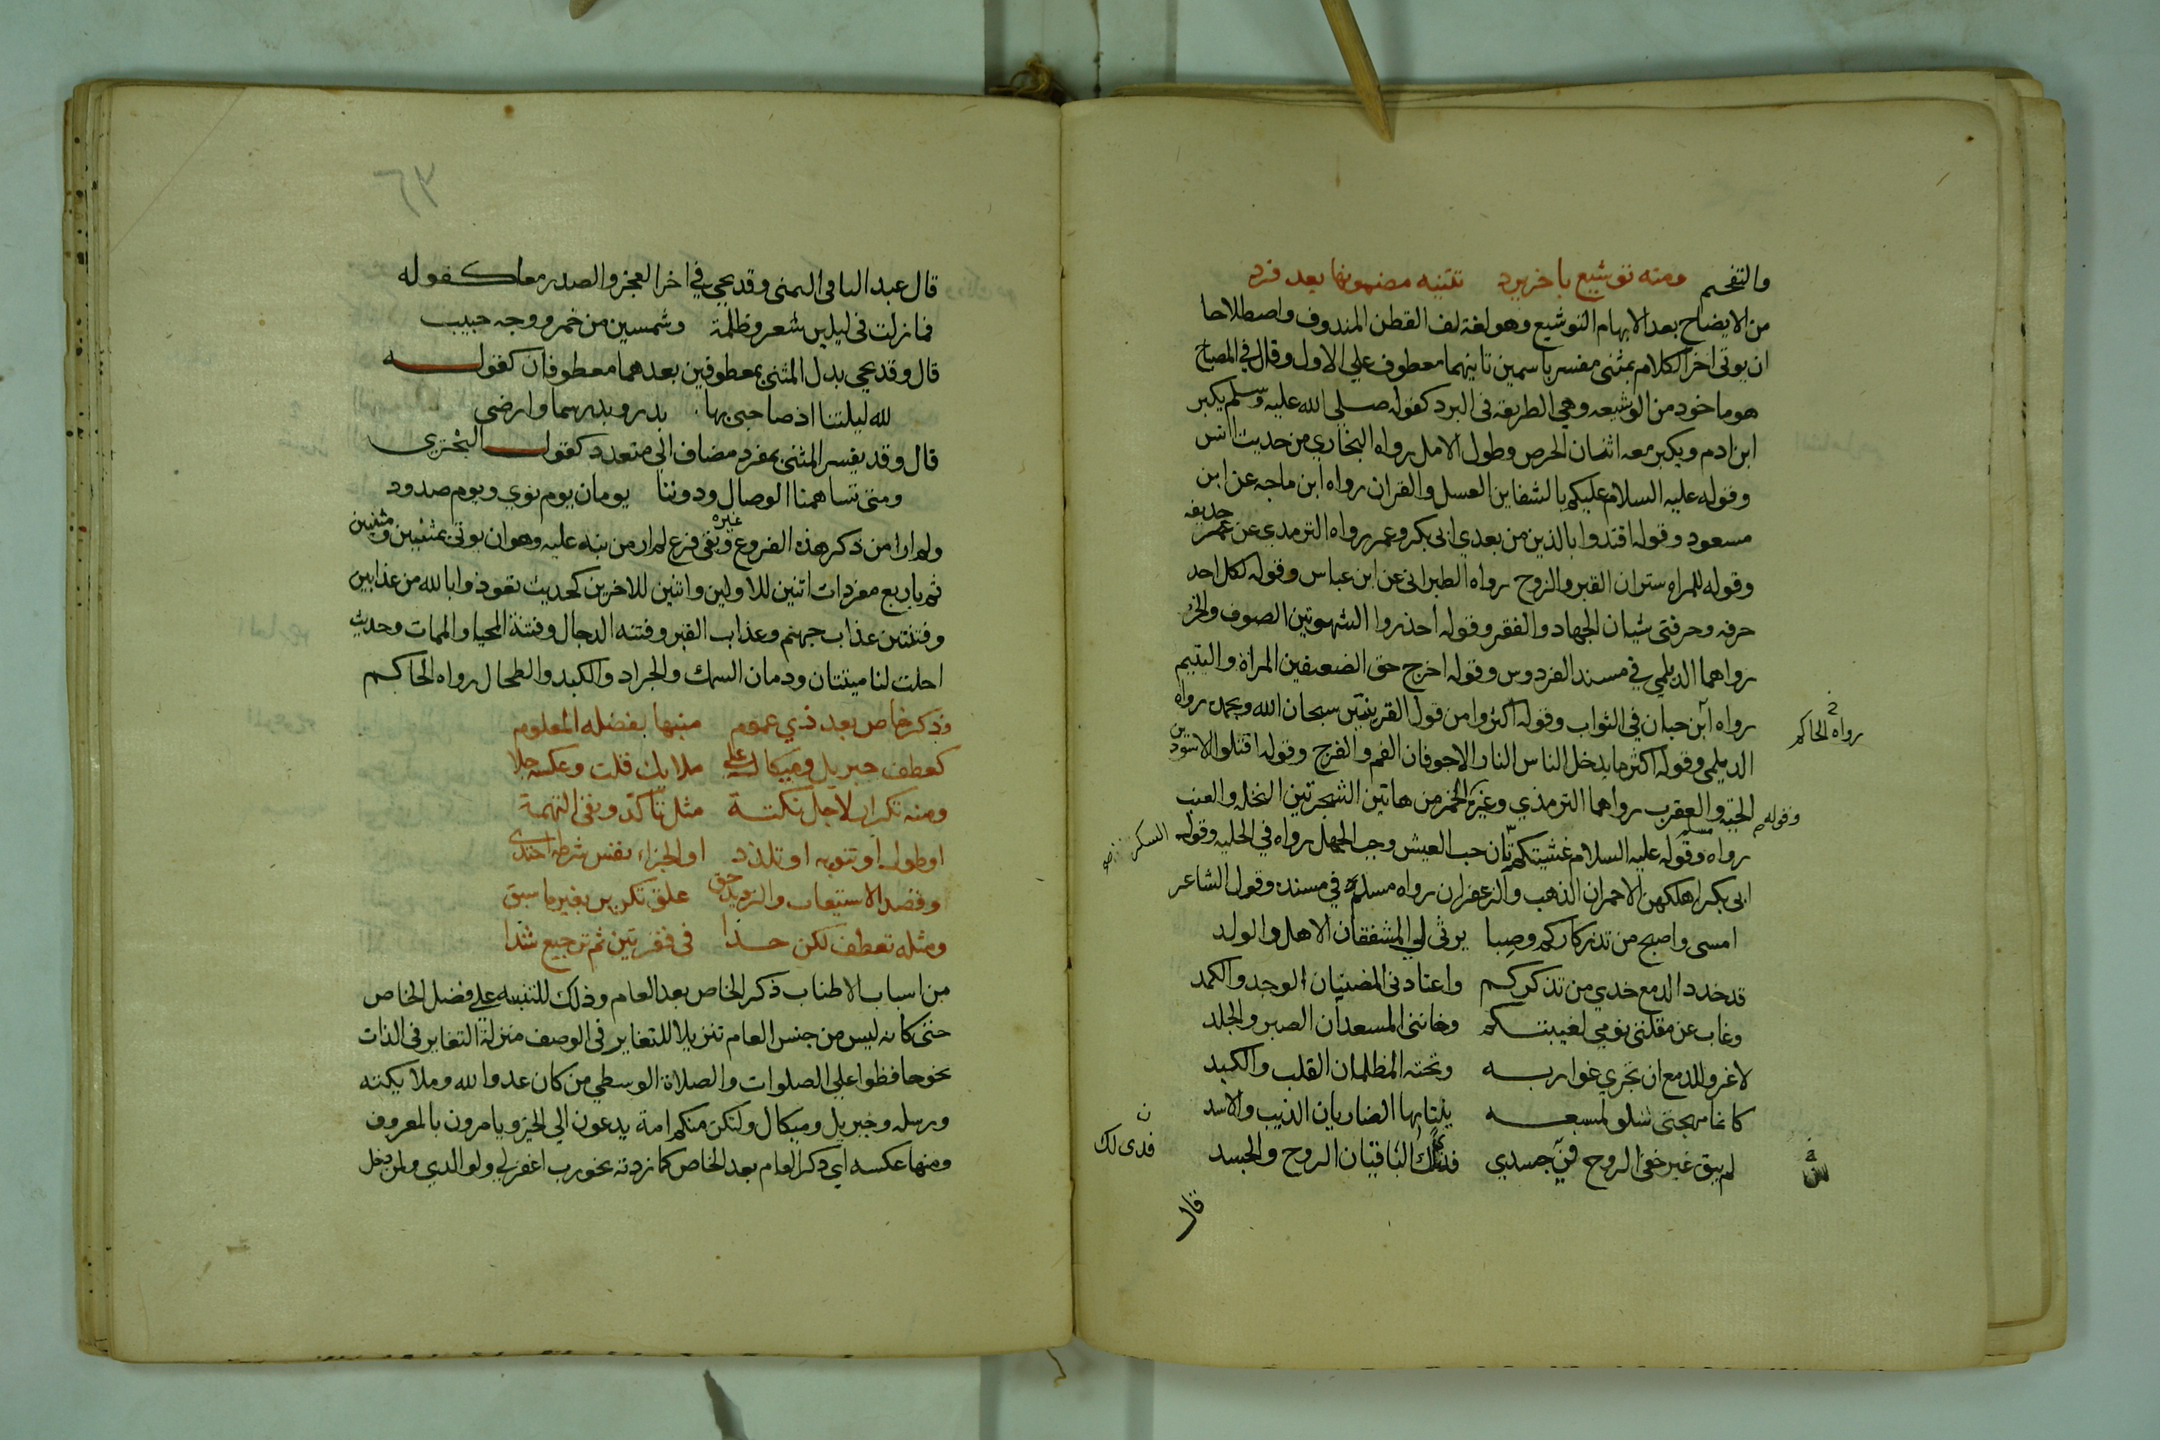 والتفخيم ومنه توشيع باخريرد تثنيه مضمونها بعد فرد
من الايضاح بعد الابهام التوشيع وهو لغة لف القطن المندوف واصطلاحا
ان يوتى اخر الكلام بمثنى مفسر باسمين ثانيهما معطوف علي الاول وقال في المصباح
هو ماخوذ من الوشيعه وهي الطريقة في البرد كقوله صلي الله عليه وسلم يكبر
ابن ادم ويكبر معه اثنان الحرص وطول الامل رواه البخاري من حديث انس
وقوله عليه السلام عليكم بالشفاين العسل والقران رواه ابن ماجه عن ابن
مسعود وقوله اقتدوا بالذين من بعدي ابى بكر وعمر رواه الترمدي عن حذيفه
وقوله للمراه ستران القبر والزوج رواه الطبرانى عن ابن عباس وقوله لكل احد
حرفه وحرفتى شيان الجهاد والفقر وقوله احذروا الشهوتين الصوف والخز
رواهما الديلمي في مسند الفردوس وقوله اخرج حق الضعيفين المراة واليتيم
رواه الحاكم
رواه ابن حبان في الثواب وقوله اكثروا من قول القرينتين سبحان الله وبحمده رواه
الديلمى وقوله اكثر ما يدخل الناس النار الاجوفان الفم والفرج وقوله اقتلوا الاسودين
الحية والعقرب رواهما الترمذي وغيره الخمر من هاتين الشجرتين النخله والعنب
وقوله
رواه مسلم وقوله عليه السلام غشيتكم السكرتان حب العيش وحب الجهل رواه في الحليه وقوله
ابى بكر اهلكهن الاحمران الذهب والزعفران رواه مسدد في مسنده وقول الشاعر
امسى واصبح من تذكاركم وصبا يرثى لي المشفقان الاهل والولد
قد خدد الدمع خدي من تذكركم واعتادنى المضنيان الوجد والكمد
وغاب عن مقلتى نومي لغيبتكم وخاننى المسعدان الصبر والجلد
لا غرو للدمع ان تجري غواربه وتحته المظلمان القلب والكبد
كانما مهجتى شلو لمسبعه ينتابها الضاريان الذيب والاسد
لم يبق غير خفى الروح في جسدي فدى لك الباقيان الروح والجسد
فدى لك
قال
قال عبد الباقى اليمنى وقد يجي في اخر العجز والصدر معا كقوله
فما زلت فى ليلين شعر وظلمة وشمسين من خمر ووجه حبيب
قال وقد يجي بدل المثنى بمعطوفين بعدهما معطوفان كقوله
لله ليلتنا اذ صاحبى بها بدر وبدر سما وارضى
قال وقد يفسر المثنى بمفرد مضاف الى متعدد كقول البختري
ومتى تساهمنا الوصال ودوننا يومان يوم نوي ويوم صدود
ولم ار من ذكر هذه الفروع غيره وبقى فرع لم ار من نبه عليه وهو ان يوتى بمثنيين
ثم باربع مفردات اثنين للاولين واثنين للاخرين كحديث تعوذوا بالله من عذابين
وفتنتين عذاب جهنم وعذاب القبر وفتنه الدجال وفتنة المحيا والممات وحديث
احلت لنا ميتتان ودمان السمك والجراد والكبد والطحال رواه الحاكم
وذكر خاص بعد ذي عموم منبها بفضله المعلوم
كعطف جبريل وميكال على ملايك قلت وعكسه جلا
ومنه تكرار لاجل نكتة مثل تاكد ونفى التهمة
او طول او تنويه او تلذد او الجزاء نفس شرطه احتذى
وقصد الاستيعاب والترديد حق علق تكرير بغير ما سبق
ومثله تعطف لكن خذا فى فقرتين ثم ترجيع شذا
من اسباب الاطناب ذكر الخاص بعد العام وذلك للتنبيه علي فضل الخاص
حتى كانه ليس من جنس العام تنزيلا للتغاير فى الوصف منزلة التغاير فى الذات
نحو حافظوا علي الصلوات والصلاة الوسطي من كان عدوا لله وملايكته
ورسله وجبريل وميكال ولتكن منكم امة يدعون الي الخير ويامرون بالمعروف
ومنها عكسه اي ذكر العام بعد الخاص كما زدته نحو رب اغفر لي ولوالدي ولمن دخل